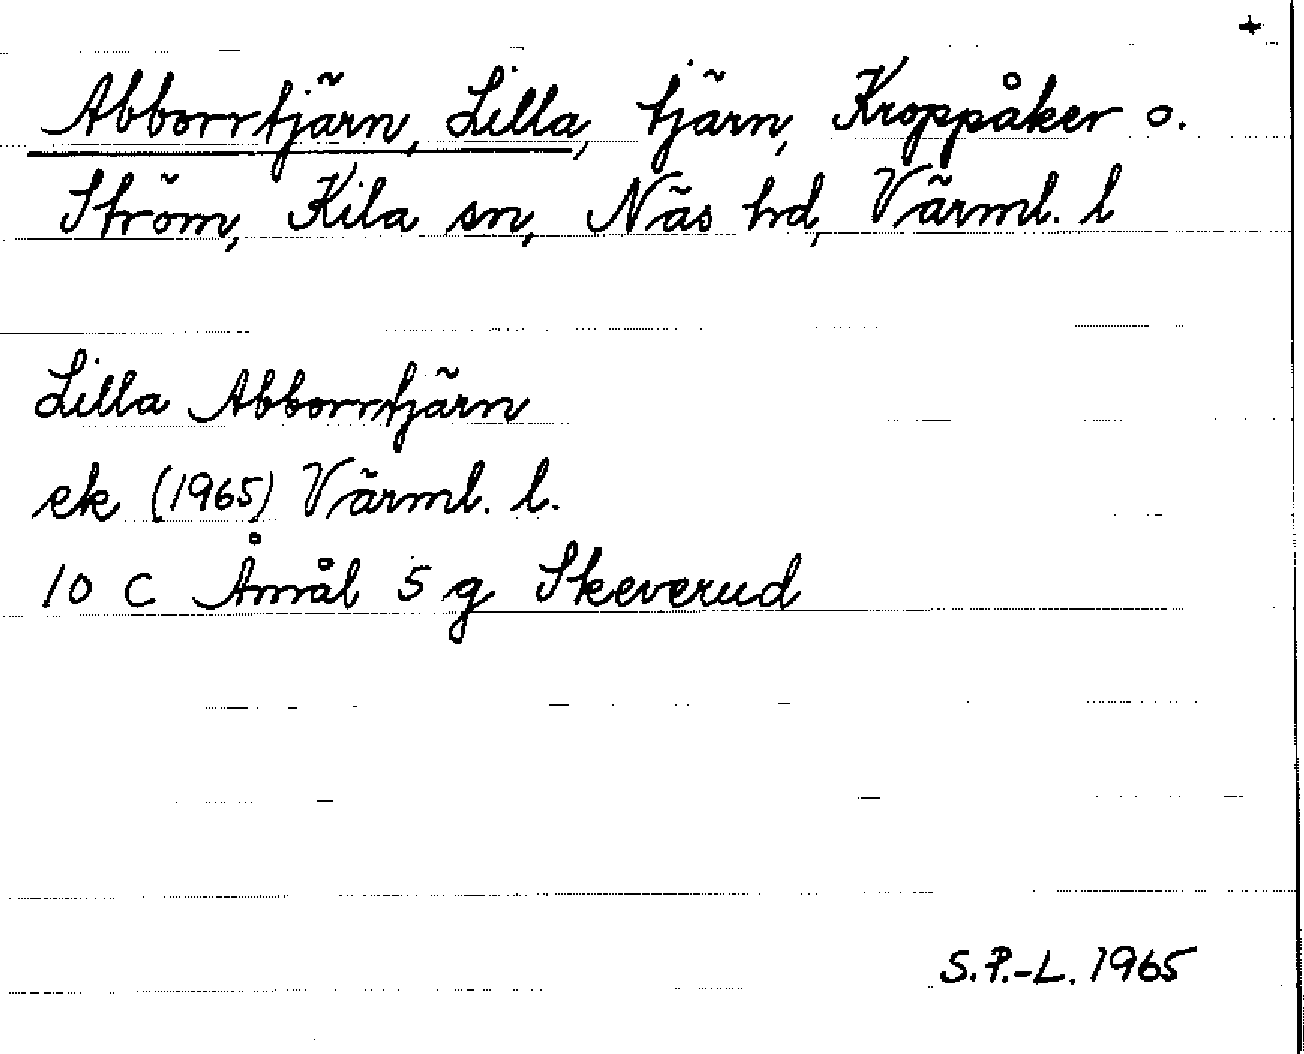 +
Abborrtjärn, Lilla, tjärn, Kroppåker o.
Ström, Kila sn, Näs hd, Värml. l
Lilla Abborrtjärn
ek (1965) Värml. l.
10 C Åmål 5 g Skeverud
S.P.-L. 1965